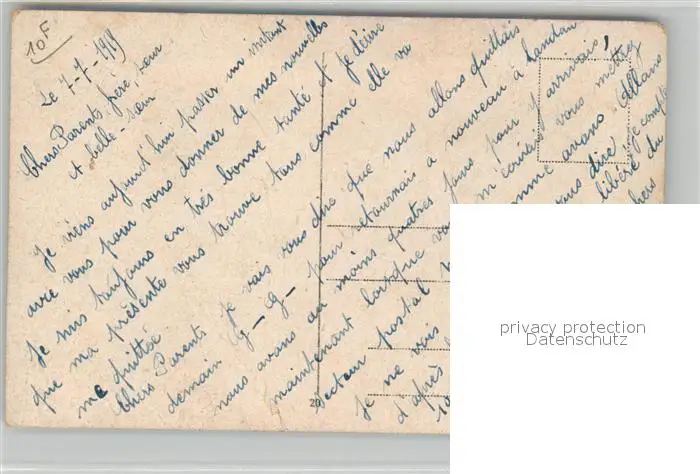 10F
Le 7-7-1919
Chers Parents, frère, sœur
et belle-sœur
Je viens aujourd'hui passer un instant
avec vous pour vous donner de mes nouvelles
Je suis toujours en très bonne santé et je désire
que ma présente vous trouve tous comme elle va
me quittée
Chers Parents je vais vous dire que nous allons quittais
demain G-G- pour retournais a nouveau à Landau
nous avons au moins quatres jours pour y arrivais,
maintenant lorsque vous m'écrirais vous mettrez
secteur postal comme avans
Je ne vois vous dire
d'après libéré du
10 chers
Allans
je compte
20
privacy protection
Datenschutz